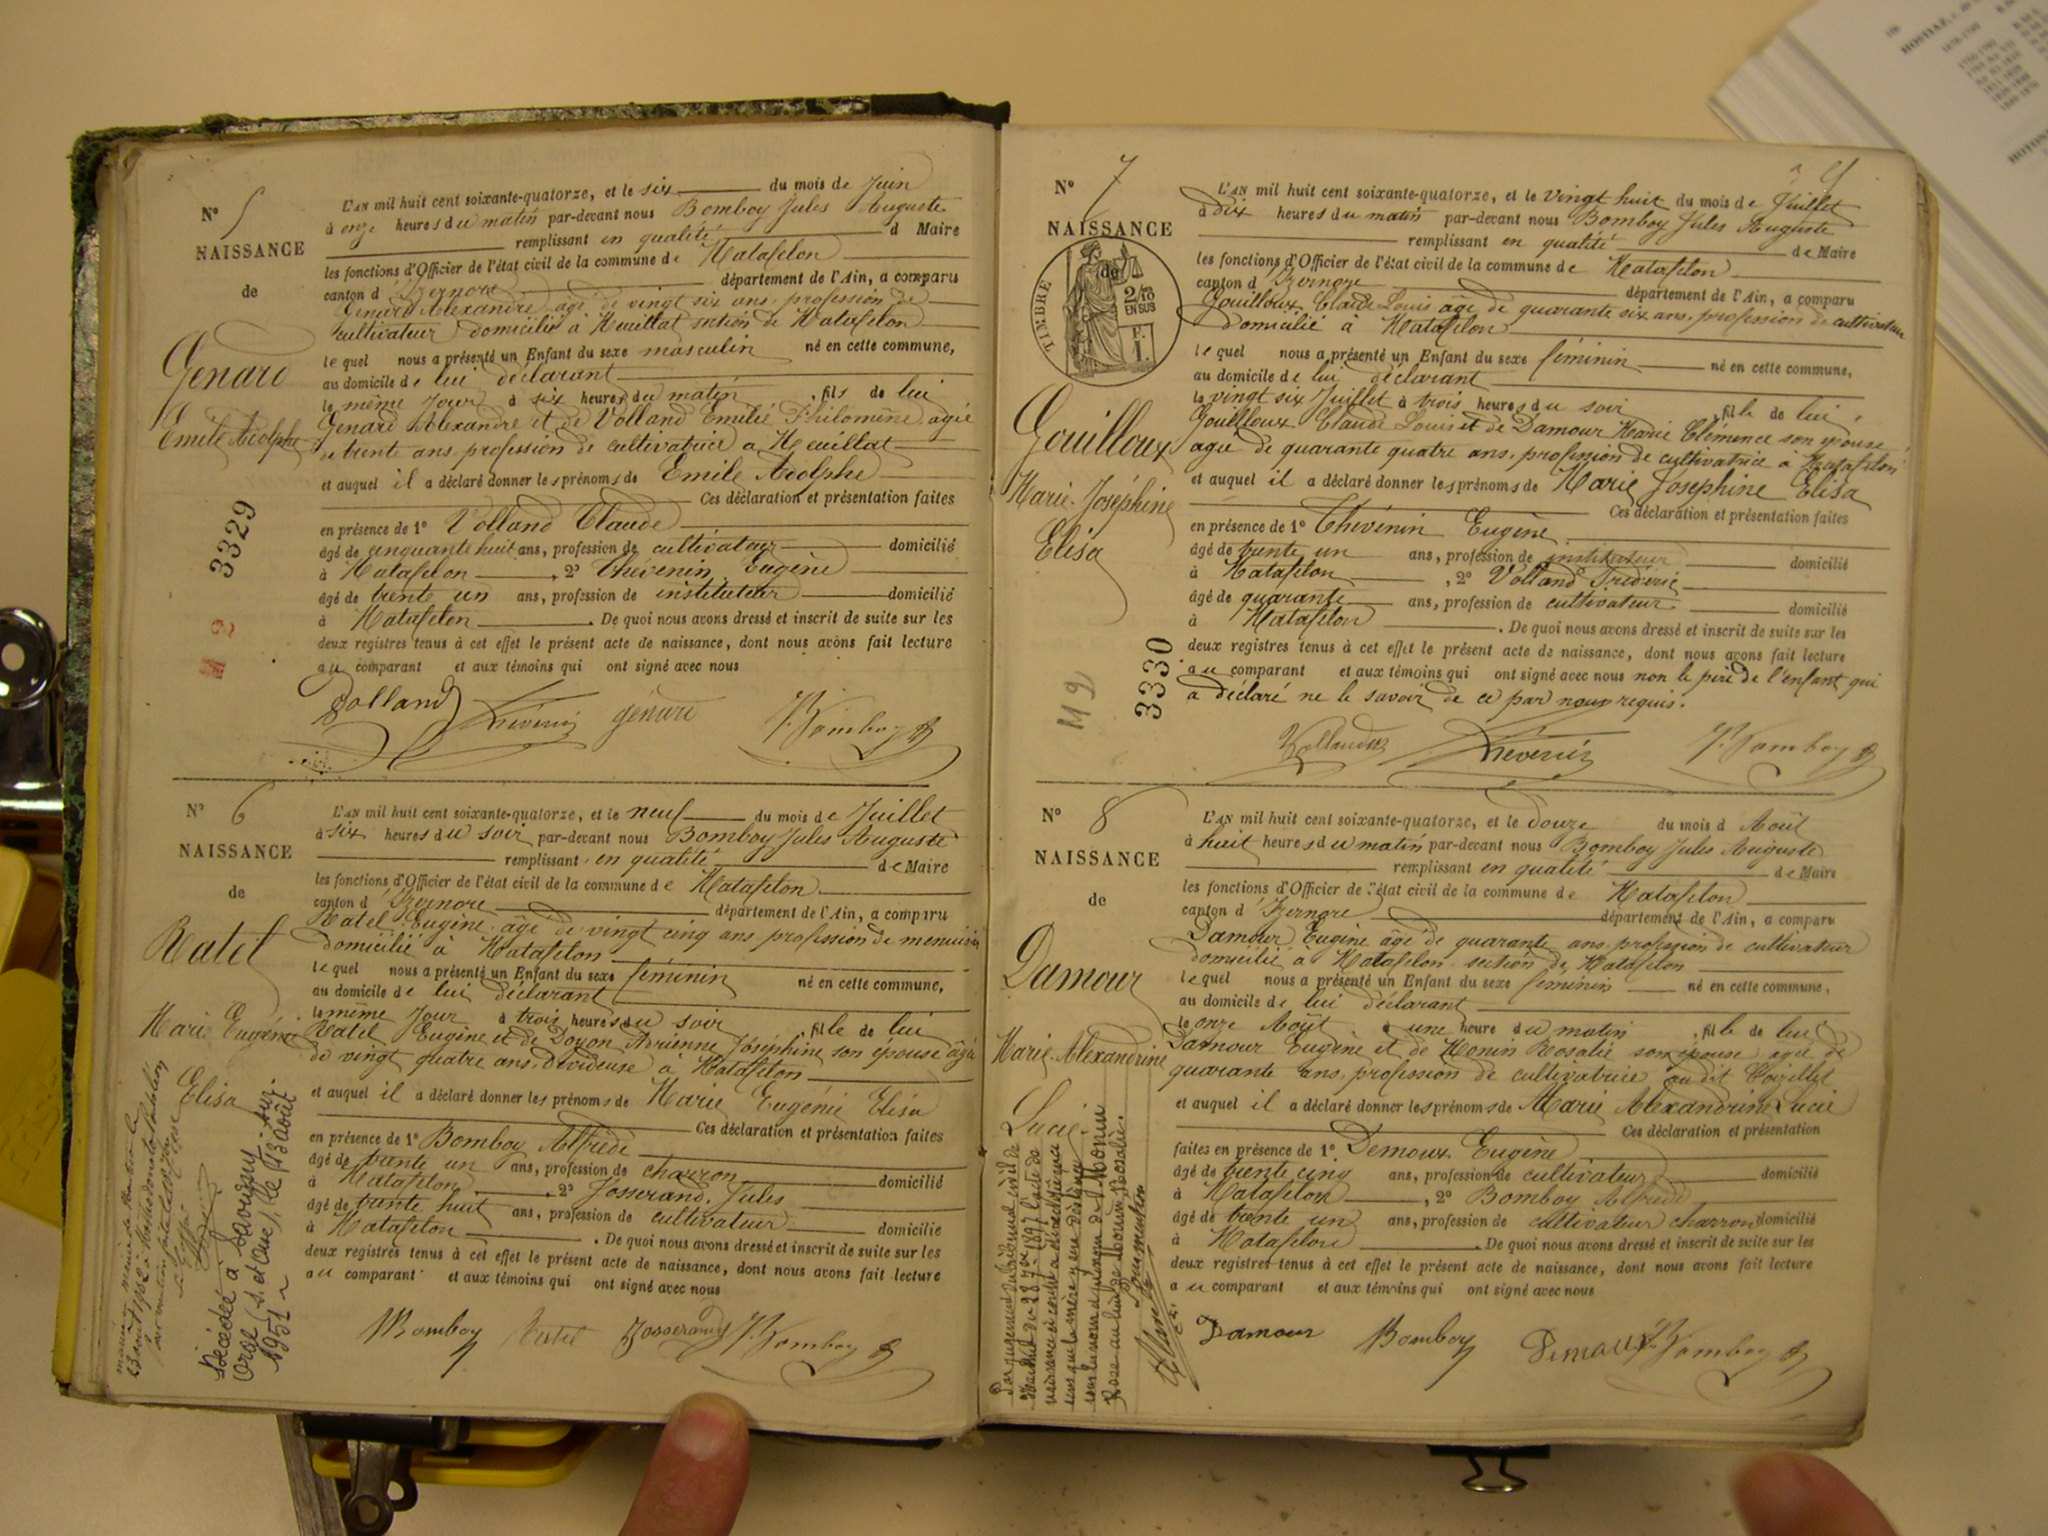 N° 5
NAISSANCE
de
Genard
Emile Adolphe
3329
L'AN mil huit cent soixante-quatorze, et le six du mois de Juin
à onze heures du matin par-devant nous Bomboy Jules Auguste
remplissant en qualité d Maire
les fonctions d'Officier de l'état civil de la commune de Matafelon
canton d'Izernore département de l'Ain, a comparu
Genard Alexandre, âgé de vingt six ans, profession de
cultivateur domicilié à Heuillat section de Matafelon
lequel nous a présenté un Enfant du sexe masculin né en cette commune,
au domicile de lui déclarant
le même Jour à six heures du matin, fils de lui
Genard Alexandre et de Volland Emilie Philomène, agée
de trente ans, profession de cultivatrice à Heuillat
et auquel il a déclaré donner les prénoms de Emile Adolphe
Ces déclaration et présentation faites
en présence de 1° Volland Claude
âgé de cinquante huit ans, profession de cultivateur domicilié
à Matafelon, 2° Thévenin Eugène
âgé de trente un ans, profession de instituteur domicilié
à Matafelon. De quoi nous avons dressé et inscrit de suite sur les
deux registres tenus à cet effet le présent acte de naissance, dont nous avons fait lecture
au comparant et aux témoins qui ont signé avec nous
Volland Thévenin génard J. Bomboy
N° 6
NAISSANCE
de
Ratel
Marie Eugénie
Elisa
Décédée à Savigny-sur-
Orge (S. et Oise), le 13 août
1951
L'AN mil huit cent soixante-quatorze, et le neuf du mois de Juillet
à six heures du soir par-devant nous Bomboy Jules Auguste
remplissant en qualité de Maire
les fonctions d'Officier de l'état civil de la commune de Matafelon
canton d'Izernore département de l'Ain, a comparu
Ratel Eugène, âgé de vingt cinq ans profession de menuisier
domicilié à Matafelon
lequel nous a présenté un Enfant du sexe féminin né en cette commune,
au domicile de lui déclarant
le même Jour à trois heures du soir, fille de lui
Ratel Eugène et de Doyon Adrienne Joséphine son épouse âgée
de vingt quatre ans, dévideuse à Matafelon
et auquel il a déclaré donner les prénoms de Marie Eugénie Elisa
Ces déclaration et présentation faites
en présence de 1° Bomboy Alfrède
âgé de trente un ans, profession de charron domicilié
à Matafelon, 2° Josserand Jules
âgé de trente huit ans, profession de cultivateur domicilié
à Matafelon. De quoi nous avons dressé et inscrit de suite sur les
deux registres tenus à cet effet le présent acte de naissance, dont nous avons fait lecture
au comparant et aux témoins qui ont signé avec nous
Bomboy Ratel Josserand J. Bomboy
N° 7
NAISSANCE
de
TIMBRE
2/10
EN SUS
Gouilloux
Marie Joséphine
Elisa
M 2
3330
L'AN mil huit cent soixante-quatorze, et le vingt huit du mois de Juillet
à dix heures du matin par-devant nous Bomboy Jules Auguste
remplissant en qualité de Maire
les fonctions d'Officier de l'état civil de la commune de Matafelon
canton d'Izernore département de l'Ain, a comparu
Gouilloux Claude Louis âgé de quarante six ans, profession de cultivateur
domicilié à Matafelon
lequel nous a présenté un Enfant du sexe féminin né en cette commune,
au domicile de lui déclarant
le vingt six Juillet à trois heures du soir, fille de lui
Gouilloux Claude Louis et de Damour Marie Clémence son épouse
agée de quarante quatre ans, profession de cultivatrice à Matafelon
et auquel il a déclaré donner les prénoms de Marie Joséphine Elisa
Ces déclaration et présentation faites
en présence de 1° Thévenin Eugène
âgé de trente un ans, profession de instituteur domicilié
à Matafelon, 2° Volland Fréderic
âgé de quarante ans, profession de cultivateur domicilié
à Matafelon. De quoi nous avons dressé et inscrit de suite sur les
deux registres tenus à cet effet le présent acte de naissance, dont nous avons fait lecture
au comparant et aux témoins qui ont signé avec nous non le père de l'enfant qui
a déclaré ne le savoir de ce par nous requis.
Thévenin J. Bomboy
N° 8
NAISSANCE
de
Damour
Marie Alexandrine
Lucie
L'AN mil huit cent soixante-quatorze, et le douze du mois d Août
à huit heures du matin par-devant nous Bomboy Jules Auguste
remplissant en qualité de Maire
les fonctions d'Officier de l'état civil de la commune de Matafelon
canton d'Izernore département de l'Ain, a comparu
Damour Eugène âgé de quarante ans profession de cultivateur
domicilié à Matafelon section de Matafelon
lequel nous a présenté un Enfant du sexe féminin né en cette commune,
au domicile de lui déclarant
le onze Août à une heure du matin, fille de lui
Damour Eugène et de Monin Rosalie son épouse agée de
quarante ans, profession de cultivatrice au dit
et auquel il a déclaré donner les prénoms de Marie Alexandrine Lucie
Ces déclaration et présentation
faites en présence de 1° Demoux Eugène
âgé de trente cinq ans, profession de cultivateur domicilié
à Matafelon, 2° Bomboy Alfrède
âgé de trente un ans, profession de cultivateur charron domicilié
à Matafelon. De quoi nous avons dressé et inscrit de suite sur les
deux registres tenus à cet effet le présent acte de naissance, dont nous avons fait lecture
au comparant et aux témoins qui ont signé avec nous
Damour Bomboy Demoux J. Bomboy